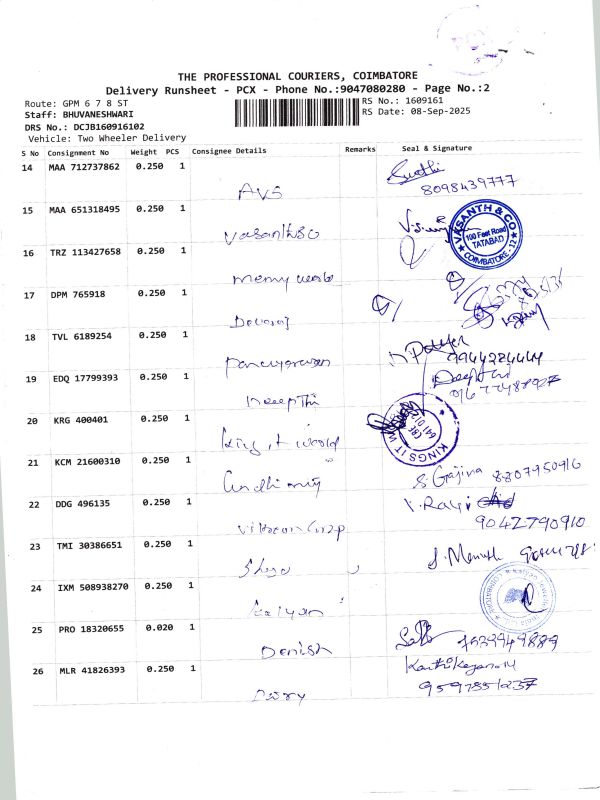 THE PROFESSIONAL COURIERS, COIMBATORE
Delivery Runsheet - PCX - Phone No.:9047080280 - Page No.:2
Route: GPM 6 7 8 ST
RS No.: 1609161
Staff: BHUVANESHWARI
RS Date: 08-Sep-2025
DRS No.: DCJB160916102
Vehicle: Two Wheeler Delivery
S No Consignment No Weight PCS Consignee Details Remarks Seal & Signature
14 MAA 712737862 0.250 1
AVS
8098439777
15 MAA 651318495 0.250 1
VASANTH & CO
100 Feet Road
TATABAD
COIMBATORE - 12
16 TRZ 113427658 0.250 1
17 DPM 765918 0.250 1
18 TVL 6189254 0.250 1
9944284444
19 EDQ 17799393 0.250 1
Deepthi
20 KRG 400401 0.250 1
King it world
KINGS IT
CBE
21 KCM 21600310 0.250 1
S. Gajina 8807950916
22 DDG 496135 0.250 1
V. Ravi
9042790910
23 TMI 30386651 0.250 1
24 IXM 508938270 0.250 1
Kalyan
25 PRO 18320655 0.020 1
Danish
7639949889
26 MLR 41826393 0.250 1
Karthikeyan M
9597851237